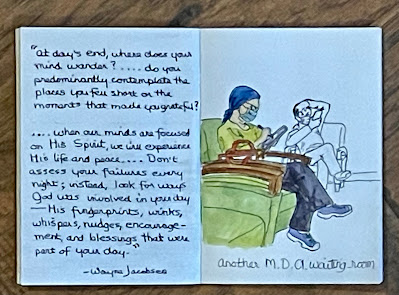 "at day's end, where does your
mind wander? .... do you
predominantly contemplate the
places you fell short or the
moments that made you grateful?
.... when our minds are focused
on His Spirit, we live experience
His life and peace .... Don't
assess your failures every
night; instead, look for ways
God was involved in your day
— His fingerprints, winks,
whispers, nudges, encourage-
ment, and blessings that were
part of your day.
-Wayne Jacobsen
another M.D.A. waiting room